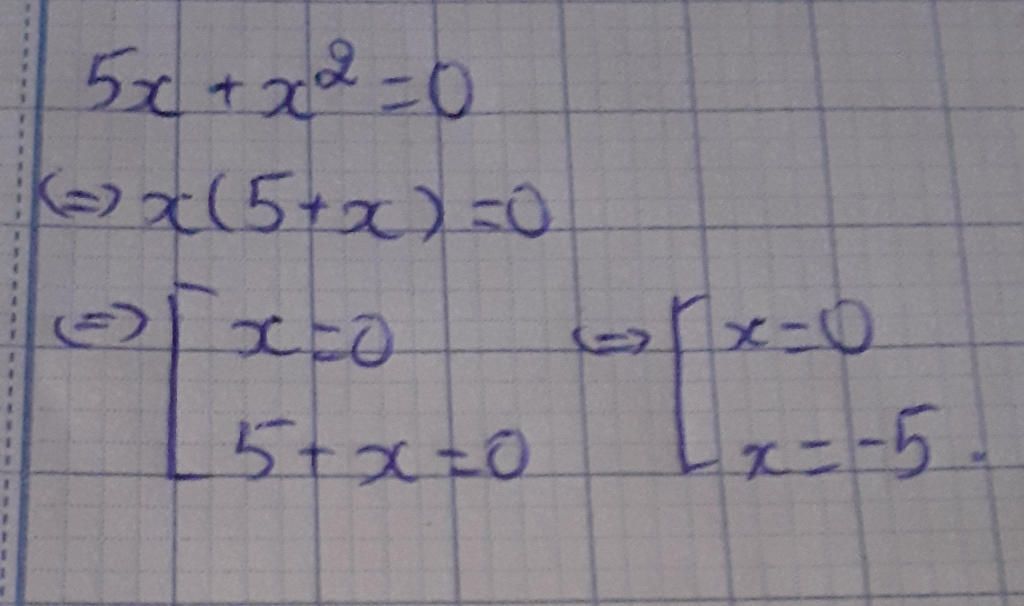 5x + x² = 0
⇔ x(5 + x) = 0
⇔ [ x = 0 ⇔ [ x = 0
5 + x = 0 x = -5.